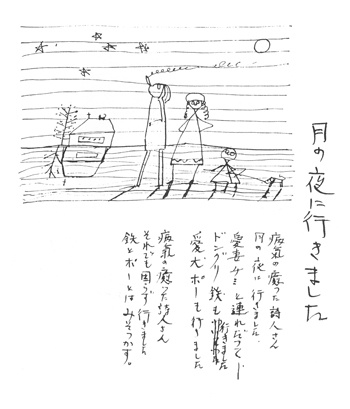 月の夜に行きました
病気の癒った詩人さん
月の夜に行きました。
愛妻 と連れだって
ドングリ鉄も行きました
愛犬ポーも行きました
病気の癒った詩人さん
それでも 行きました
鉄とポーとはみそっかす。